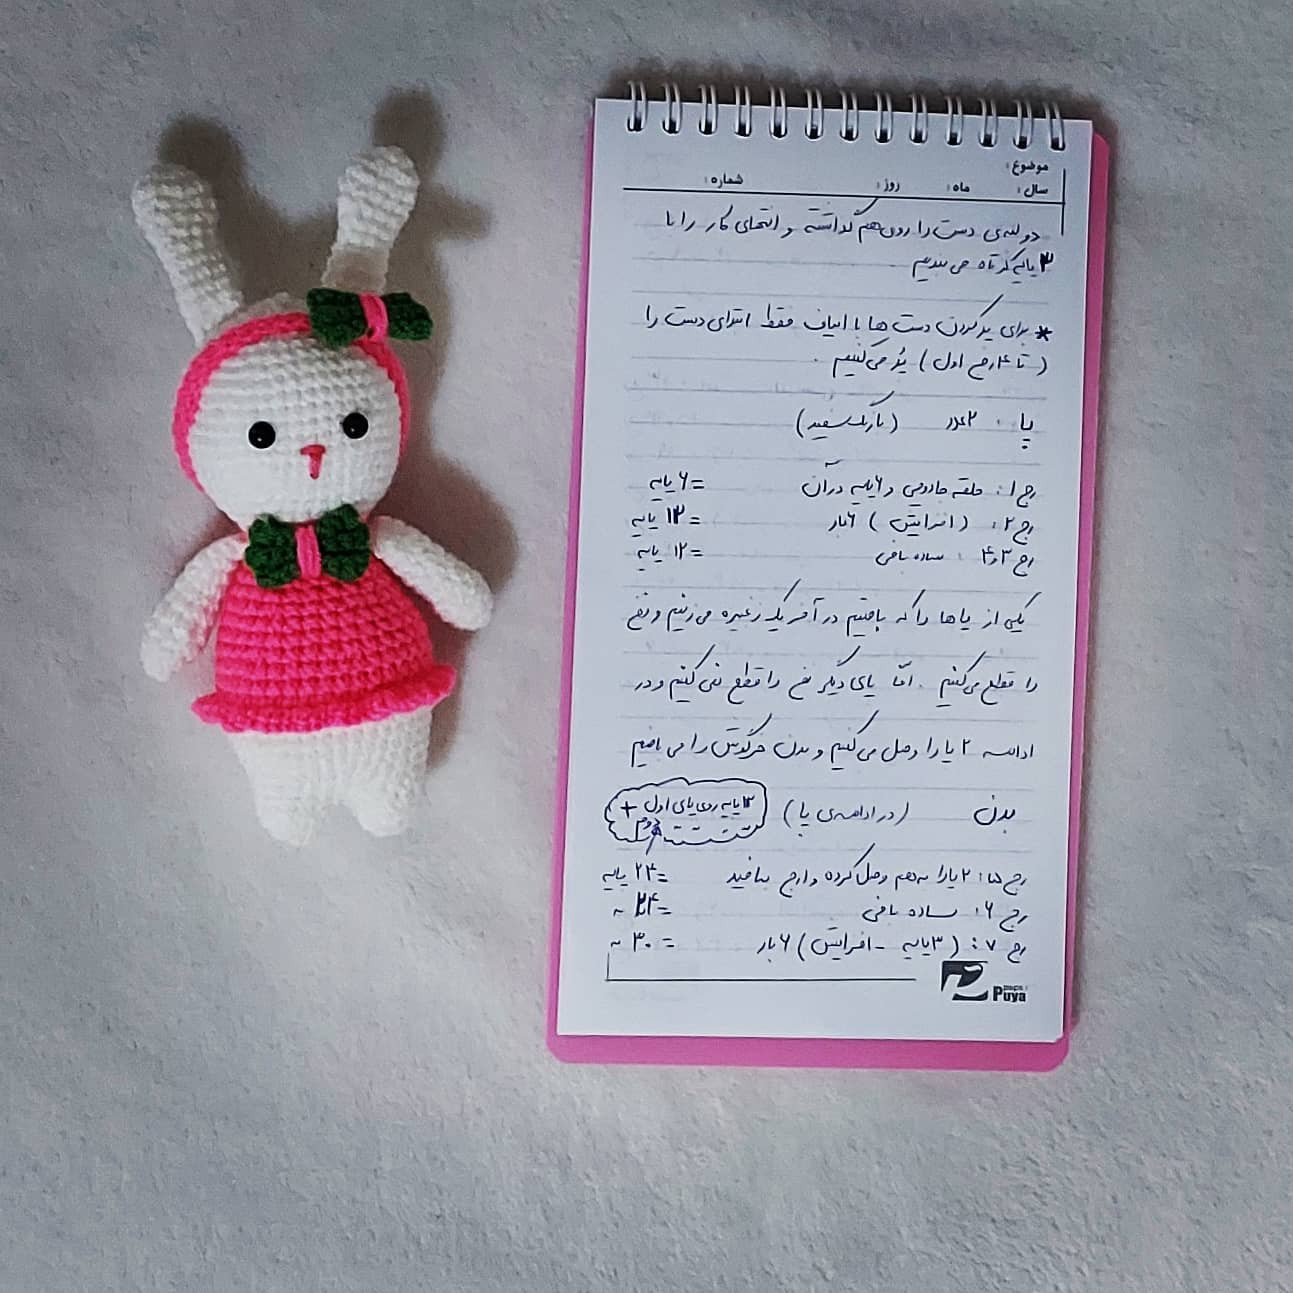 موضوع:
سال: ماه: روز: شماره:
دو لبه‌ی دست را روی هم گذاشته و انتهای کار را با
۳ پایه کوتاه می بندیم
* برای پر کردن دست ها با الیاف فقط ابتدای دست را
(تا ۴ رج اول) پُر می کنیم.
پا: ۲ عدد (با رنگ سفید)
رج ۱: حلقه جادویی و ۶ پایه در آن = ۶ پایه
رج ۲: (افزایش) ۶ بار = ۱۲ پایه
رج ۳ و ۴: ساده بافی = ۱۲ پایه
یکی از پاها را که بافتیم در آخر یک زنجیره می زنیم و نخ
را قطع می کنیم. امّا پای دیگر نخ را قطع نمی کنیم و در
ادامه ۲ پا را وصل می کنیم و بدن خرگوش را می بافیم
بدن (در ادامه‌ی پا) ۱۲ پایه روی پای اول +
دوم
رج ۵: ۲ پا را به هم وصل کرده و ۱ رج ببافید = ۲۴ پایه
رج ۶: ساده بافی = ۲۴ ~
رج ۷: (۳ پایه - افزایش) ۶ بار = ۳۰ ~
papco
Puya